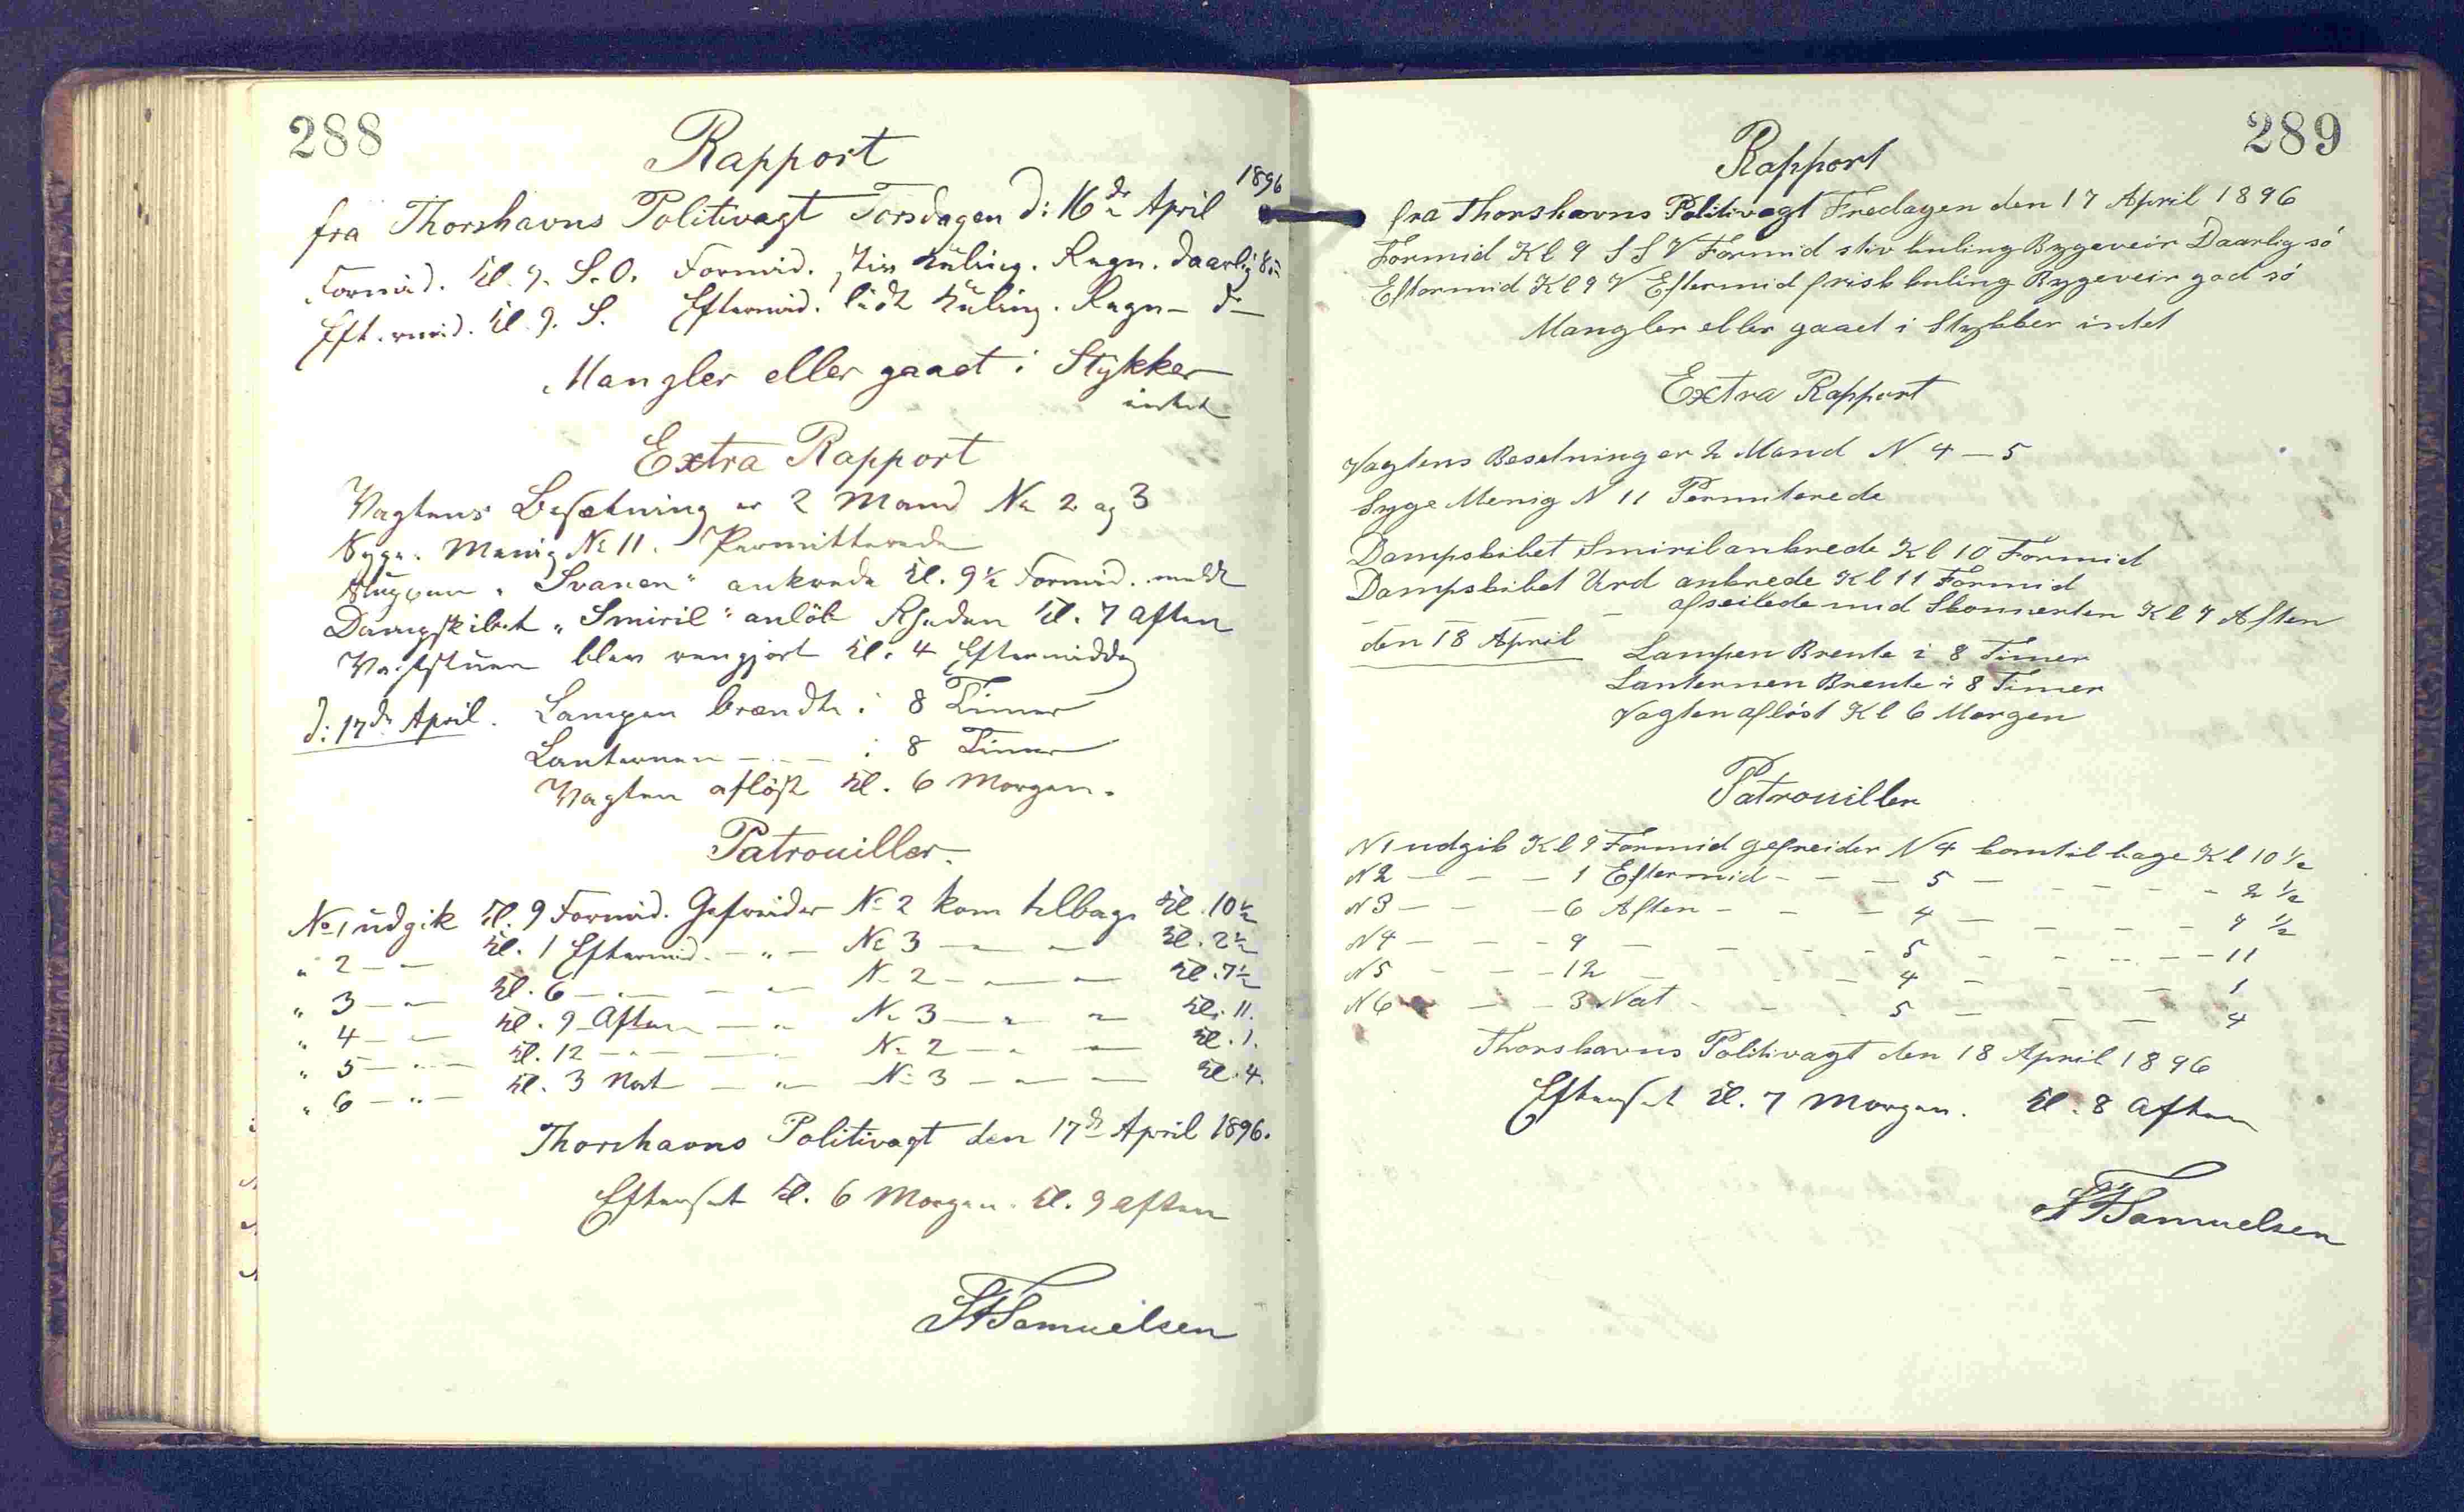 288
Rapport
fra Thorshavns Politivagt Torsdagen d: 16de April 1896
Formid. Kl. 9. S.O. Formid. stiv Kuling. Regn. daarlig Sö
Eftermid. Kl. 9. S. Eftermid. lidt Kuling. Regn — do
Mangler eller gaaet i Stykker
intet
Extra Rapport
Vagtens Besætning er 2 Mand No 2 og 3
Syge. Menig No 11. Permitterede
Sluppen „Svanen“ ankrede Kl. 9½ Formid.
Dampskibet „Smiril“ anlöb Rheden Kl. 7 Aften
Vagtstuen blev rengjort Kl. 4 Eftermiddag
d: 17de April. Lampen brændte i 8 Timer
Lanternen — „ — i 8 Timer
Vagten aflöst Kl. 6 Morgen.
Patrouiller.
No 1 udgik Kl. 9 Formid. Gefreider No 2 kom tilbage Kl. 10½
„ 2 — „ — Kl. 1 Eftermid. — „ — No 3 — „ — Kl. 2½
„ 3 — „ — Kl. 6 — „ — — „ — No 2 — „ — Kl. 7½
„ 4 — „ — Kl. 9 Aften — „ — No 3 — „ — Kl. 11.
„ 5 — „ — Kl. 12 — „ — — „ — No 2 — „ — Kl. 1.
„ 6 — „ — Kl. 3 Nat — „ — No 3 — „ — Kl. 4.
Thorshavns Politivagt den 17de April 1896.
Efterset Kl. 6 Morgen. Kl. 9 Aften
Samuelsen
289
Rapport
fra Thorshavns Politivagt Fredagen den 17 April 1896
Formid Kl 9 S S V Formid stiv kuling Bygeveir Daarlig sö
Eftermid Kl 9 V Eftermid frisk kuling Bygeveir god sö
Mangler eller gaaet i Stykker intet
Extra Rapport
Vagtens Besetning er 2 Mand N 4 — 5
Syge Menig N 11 Permiterede
Dampskibet Smiril ankrede Kl 10 Formid
Dampskibet Urd ankrede Kl 11 Formid
— — — — afseilede med Skonnerten Kl 7 Aften
den 18 April Lampen Brente i 8 Timer
Lanternen Brente i 8 Timer
Vagten aflöst Kl 6 Morgen
Patrouiller
N 1 udgik Kl 9 Formid gefreider N 4 kom tilbage Kl 10 ½
N 2 — — — 1 Eftermid — — — 5 — — — — 2 ½
N 3 — — — 6 Aften — — — 4 — — — — 7 ½
N 4 — — — 9 — — — — 5 — — — — 11
N 5 — — — 12 — — — — 4 — — — — 1
N 6 — — — 3 Nat — — — 5 — — — — 4
Thorshavns Politivagt den 18 April 1896
Efterset Kl. 7 Morgen. Kl. 8 Aften
Samuelsen